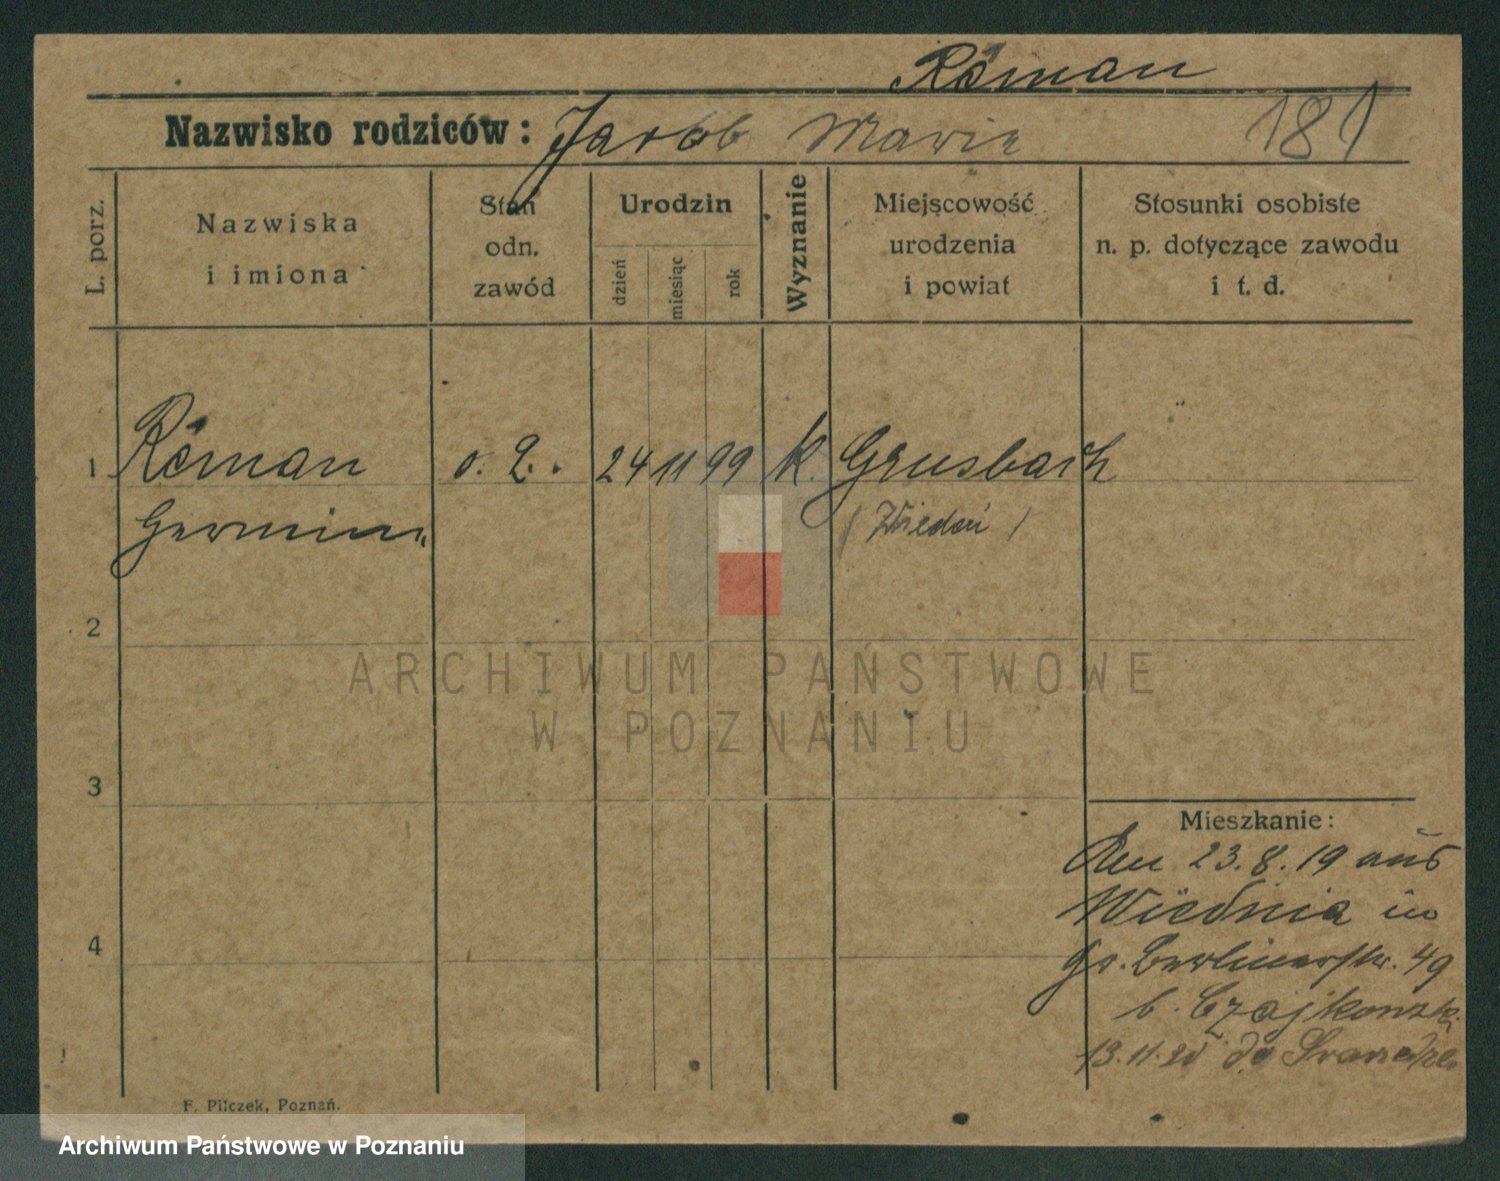 Röman
Nazwisko rodziców: Jacob Marie 181
L. porz.
Nazwiska
i imiona
Stan
odn.
zawód
Urodzin
dzień
miesiąc
rok
Wyznanie
Miejscowość
urodzenia
i powiat
Stosunki osobiste
n. p. dotyczące zawodu
i t. d.
1 Röman o. 24 11 99 k. Grusbach
(Wiedeń)
2
3
4
Mieszkanie:
Den 23.8.19 aus
Wiednia in
Berlinerstr. 49
b. Czajkowski
13.11.20 do
F. Pilczek, Poznań.
ARCHIWUM PAŃSTWOWE
W POZNANIU
Archiwum Państwowe w Poznaniu